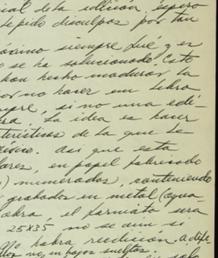 cial de la edición. espero
le pido disculpas por tan
ximo siempre fué y es
se ha solucionado. Esto
han hecho madurar la
por no hacer un libro
pre, si no una edi-
ra. La idea es hacer
terísticas de la que le
Así que esta
lares, en papel fabricado
) numerados, conteniendo
grabados en metal (agua-
obra, el formato será
25x35 no se aún si
No habrá reedición
ni en hojas sueltas.